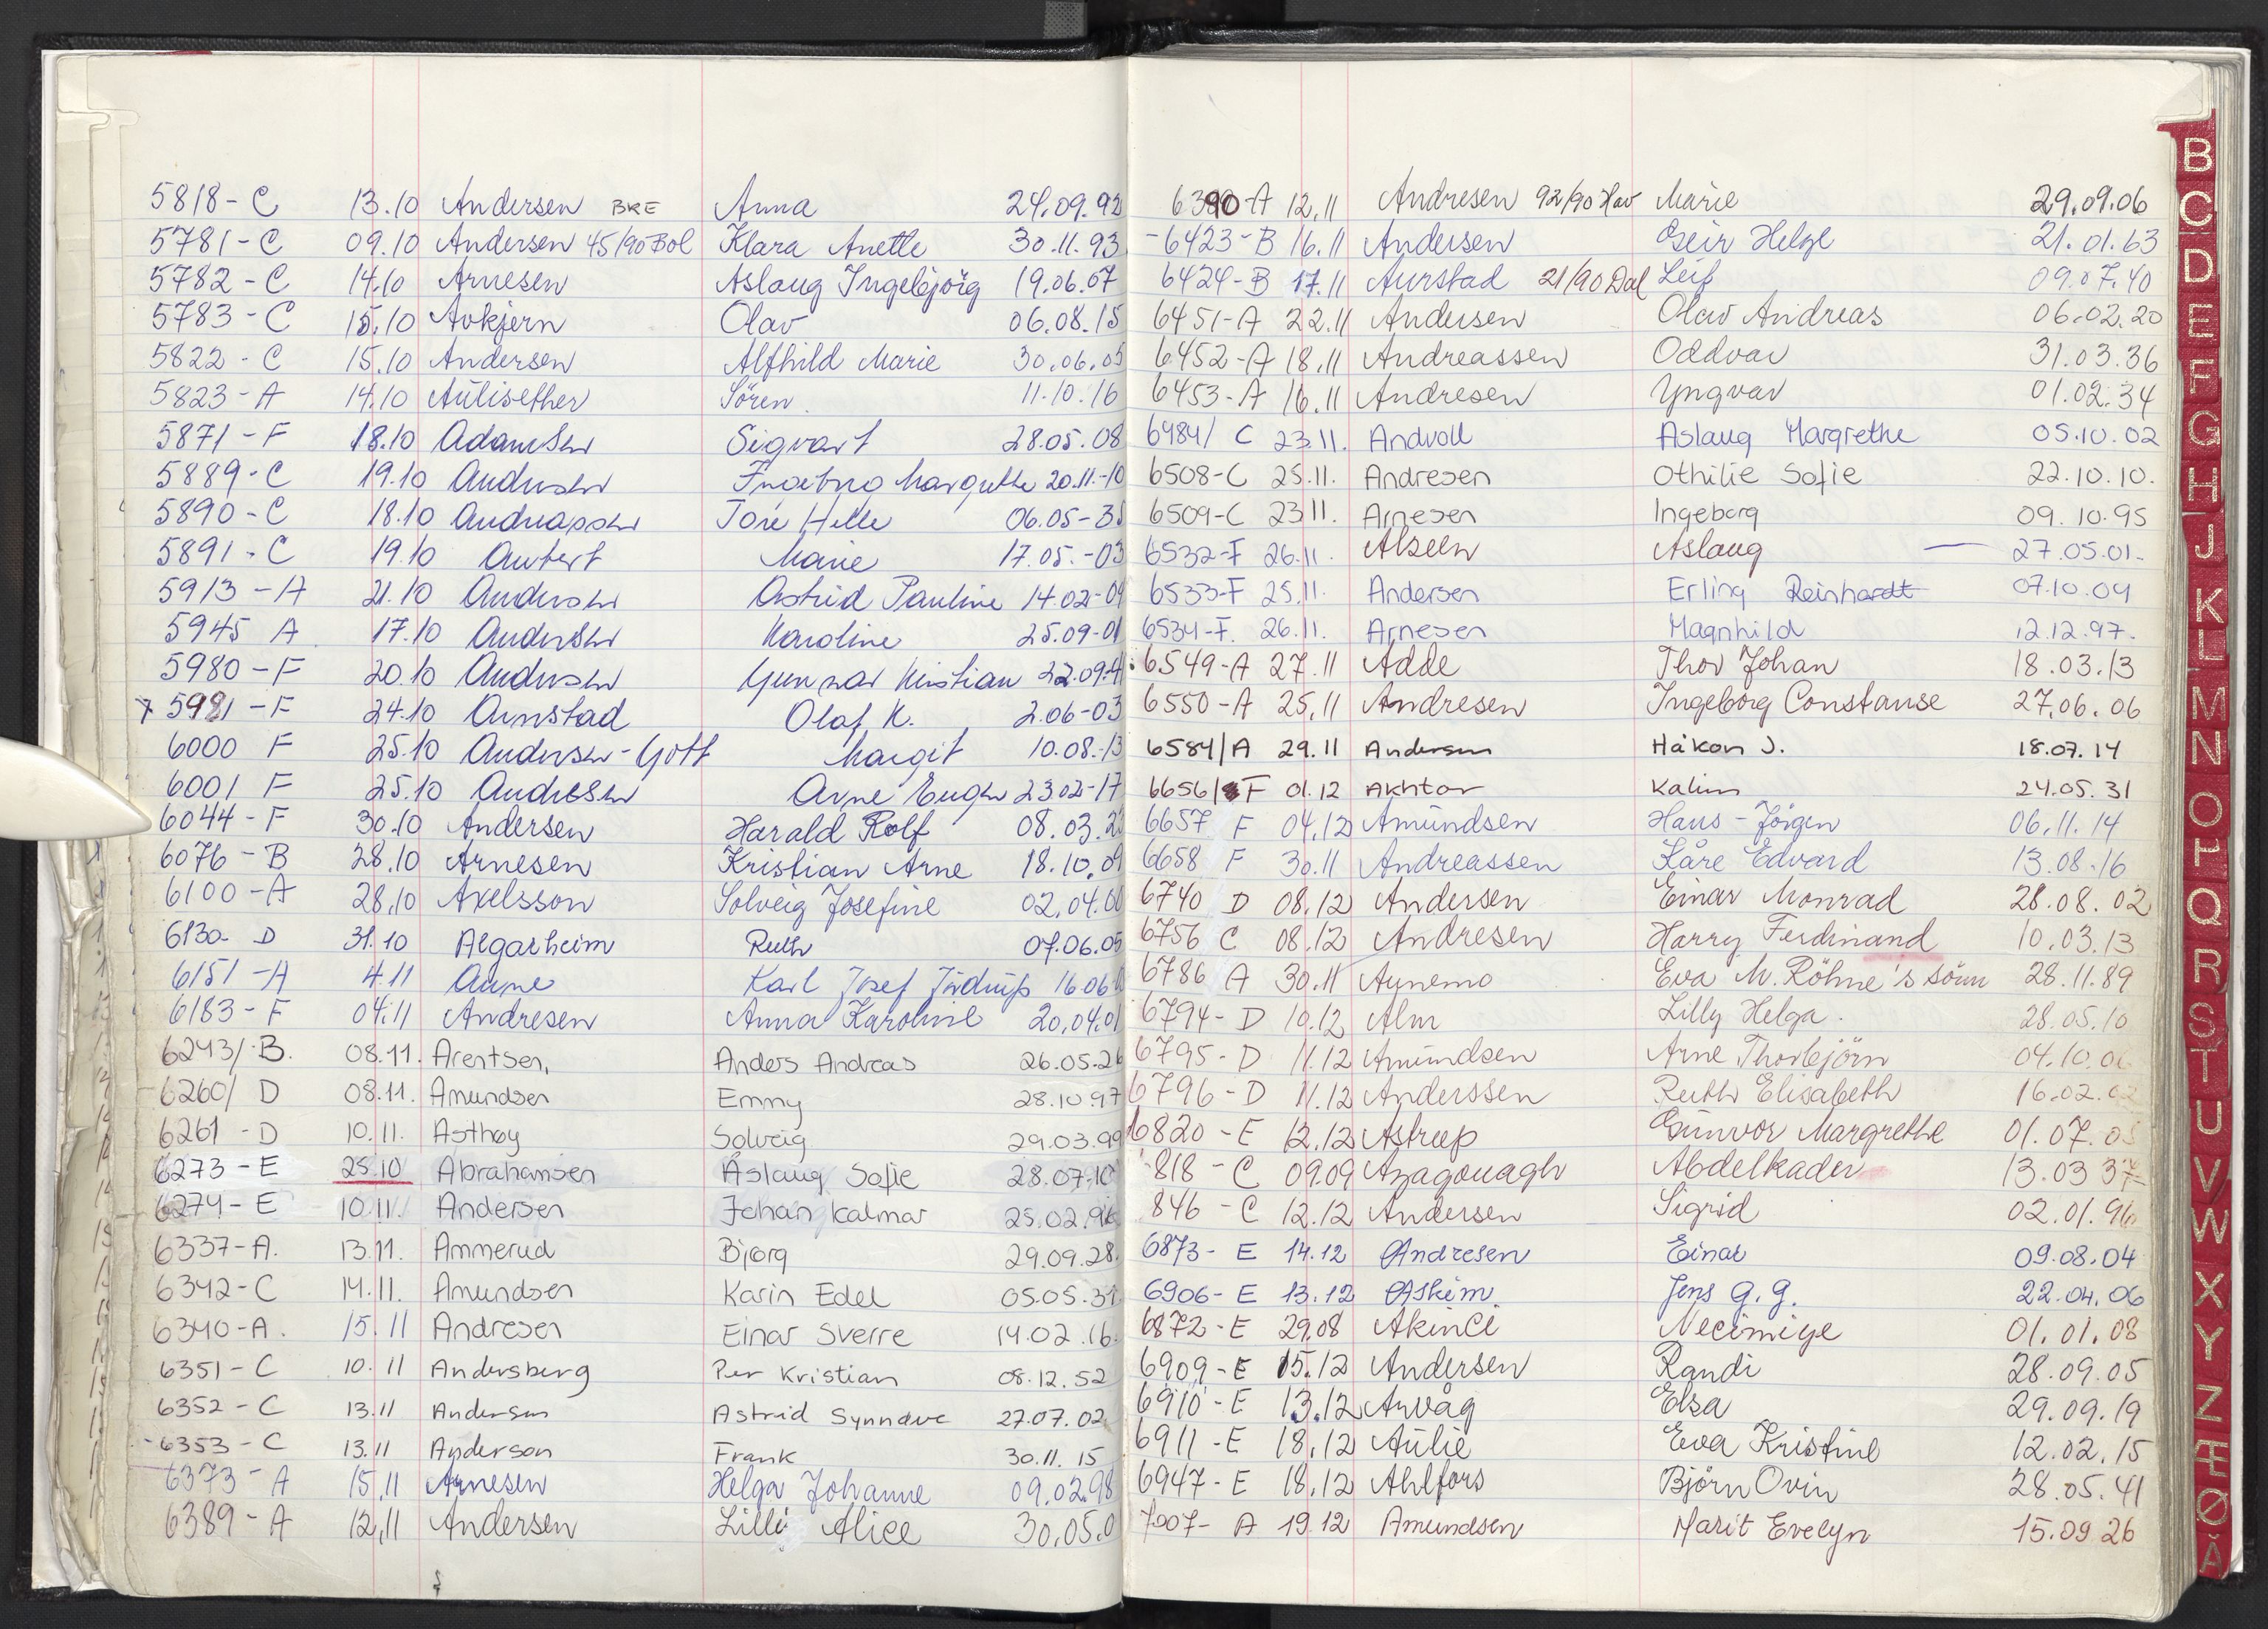 5818 - C 13.10 Andersen BRE Anna 24.09.92
5781 - C 09.10 Andersen 45/90 Bol Klara Anette 30.11.93
5782 - C 14.10 Arnesen Aslaug Ingebjörg 19.06.07
5783 - C 15.10 Avkjern Olav 06.08.15
5822 - C 15.10 Andersen Alfhild Marie 30.06.05
5823 - A 14.10 Aulisether Sören 11.10.16
5871 - F 18.10 Adamsen Sigvart 28.05.08
5889 - C 19.10 Andersen Ingeborg Margrethe 20.11.-10
5890 - C 18.10 Andreassen Tore Helle 06.05-35
5891 - C 19.10 Aubert Marie 17.05.-03
5913 - A 21.10 Andersen Astrid Pauline 14.02-09
5945 A 17.10 Andersen Karoline 25.09-01
5980 - F 20.10 Andersen Gunnar Kristian 22.09-4
5981 - F 24.10 Arnstad Olaf K. 2.06-03
6000 F 25.10 Andersen-Gott Margit 10.08.-13
6001 F 25.10 Andresen Arne Eugen 23.02-17
6044 - F 30.10 Andersen Harald Rolf 08.03.2
6076 - B 28.10 Arnesen Kristian Arne 18.10.09
6100 - A 28.10 Axelsson Solveig Josefine 02.04.00
6130- D 31.10 Algarheim Ruth 07.06.05
6151 - A 4.11 Aune Karl Josef Jördrup 16.06
6183 - F 04.11 Andresen Anna Karoline 20.04.01
6243/ B. 08.11. Arentsen, Anders Andreas 26.05.26
6260/ D 08.11. Amundsen Emmy 28.10.97
6261 - D 10.11. Asthøy Solveig 29.03.99
6273 - E 25.10 Abrahamsen Åslaug Sofie 28.07.10
6274 - E 10.11. Andersen Johan Kalmar 25.02.96
6337 - A. 13.11. Ammerud Bjørg 29.09.28.
6342 - C 14.11. Amundsen Karin Edel 05.05.31.
6340 - A. 15.11 Andresen Einar Sverre 14.02.16.
6351 - C 10.11 Andersberg Per Kristian 08.12.52
6352 - C 13.11 Andersen Astrid Synnøve 27.07.02
6353 - C 13.11 Anderson Frank 30.11.15
6373 - A 15.11 Arnesen Helga Johanne 09.02.98
6389 - A 12.11 Andersen Lilli Alice 30.05.0
6390 - A 12.11 Andresen 92/90 Hav Marie 29.09.06
6423 - B 16.11 Andersen Geir Helge 21.01.63
6424 - B 17.11 Aurstad 21/90 Dal Leif 09.07.40
6451 - A 22.11 Andersen Olav Andreas 06.02.20
6452 - A 18.11 Andreassen Oddvar 31.03.36
6453 - A 16.11 Andresen Yngvar 01.02.34
6484/ C 23.11. Andvoll Aslaug Margrethe 05.10.02
6508 - C 25.11. Andresen Othilie Sofie 22.10.10.
6509 - C 23.11. Arnesen Ingeborg 09.10.95
6532 - F 26.11. Alseen Aslaug 27.05.01.
6533 - F 25.11. Andersen Erling Reinhardt 07.10.04
6534 - F. 26.11. Arnesen Magnhild 12.12.97.
6549 - A 27.11 Adde Thor Johan 18.03.13
6550 - A 25.11 Andresen Ingeborg Constanse 27.06.06
6584/A 29.11 Andersen Håkon J. 18.07.14
6656/ F 01.12 Akhtar Kalim 24.05.31
6657 F 04.12 Amundsen Hans-Jörgen 06.11.14
6658 F 30.11 Andreassen Kåre Edvard 13.08.16
6740 D 08.12 Andersen Einar Monrad 28.08.02
6756 C 08.12 Andresen Harry Ferdinand 10.03.13
6786 A 30.11 Aunemo Eva M. Röhne's sönn 28.11.89
6794 - D 10.12 Alm Lilly Helga. 28.05.10
6795 - D 11.12 Amundsen Arne Thorbjörn 04.10.06
6796 - D 11.12 Anderssen Ruth Elisabeth 16.02.02
6820 - E 12.12 Astrup Gunvor Margrethe 01.07.05
818 - C 09.09 Azagouagh Abdelkader 13.03 37
846 - C 12.12 Andersen Sigrid 02.01.96
6873 - E 14.12 Andresen Einar 09.08.04
6906 - E 13.12 Askim Jens G. G. 22.04.06
6872 - E 29.08 Akinci Necimiye 01.01.08
6909 - E 15.12 Andersen Randi 28.09.05
6910 - E 13.12 Arvåg Elsa 29.09.19
6911 - E 18.12 Aulie Eva Kristine 12.02.15
6947 - E 18.12 Ahlfors Björn Ovin 28.05.41
7007 - A 19.12 Amundsen Marit Evelyn 15.09.26
B
C
D
E
F
G
H
J
K
L
M
N
O
P
Q
R
S
T
U
V
W
X
Y
Z
Æ
Ø
Å